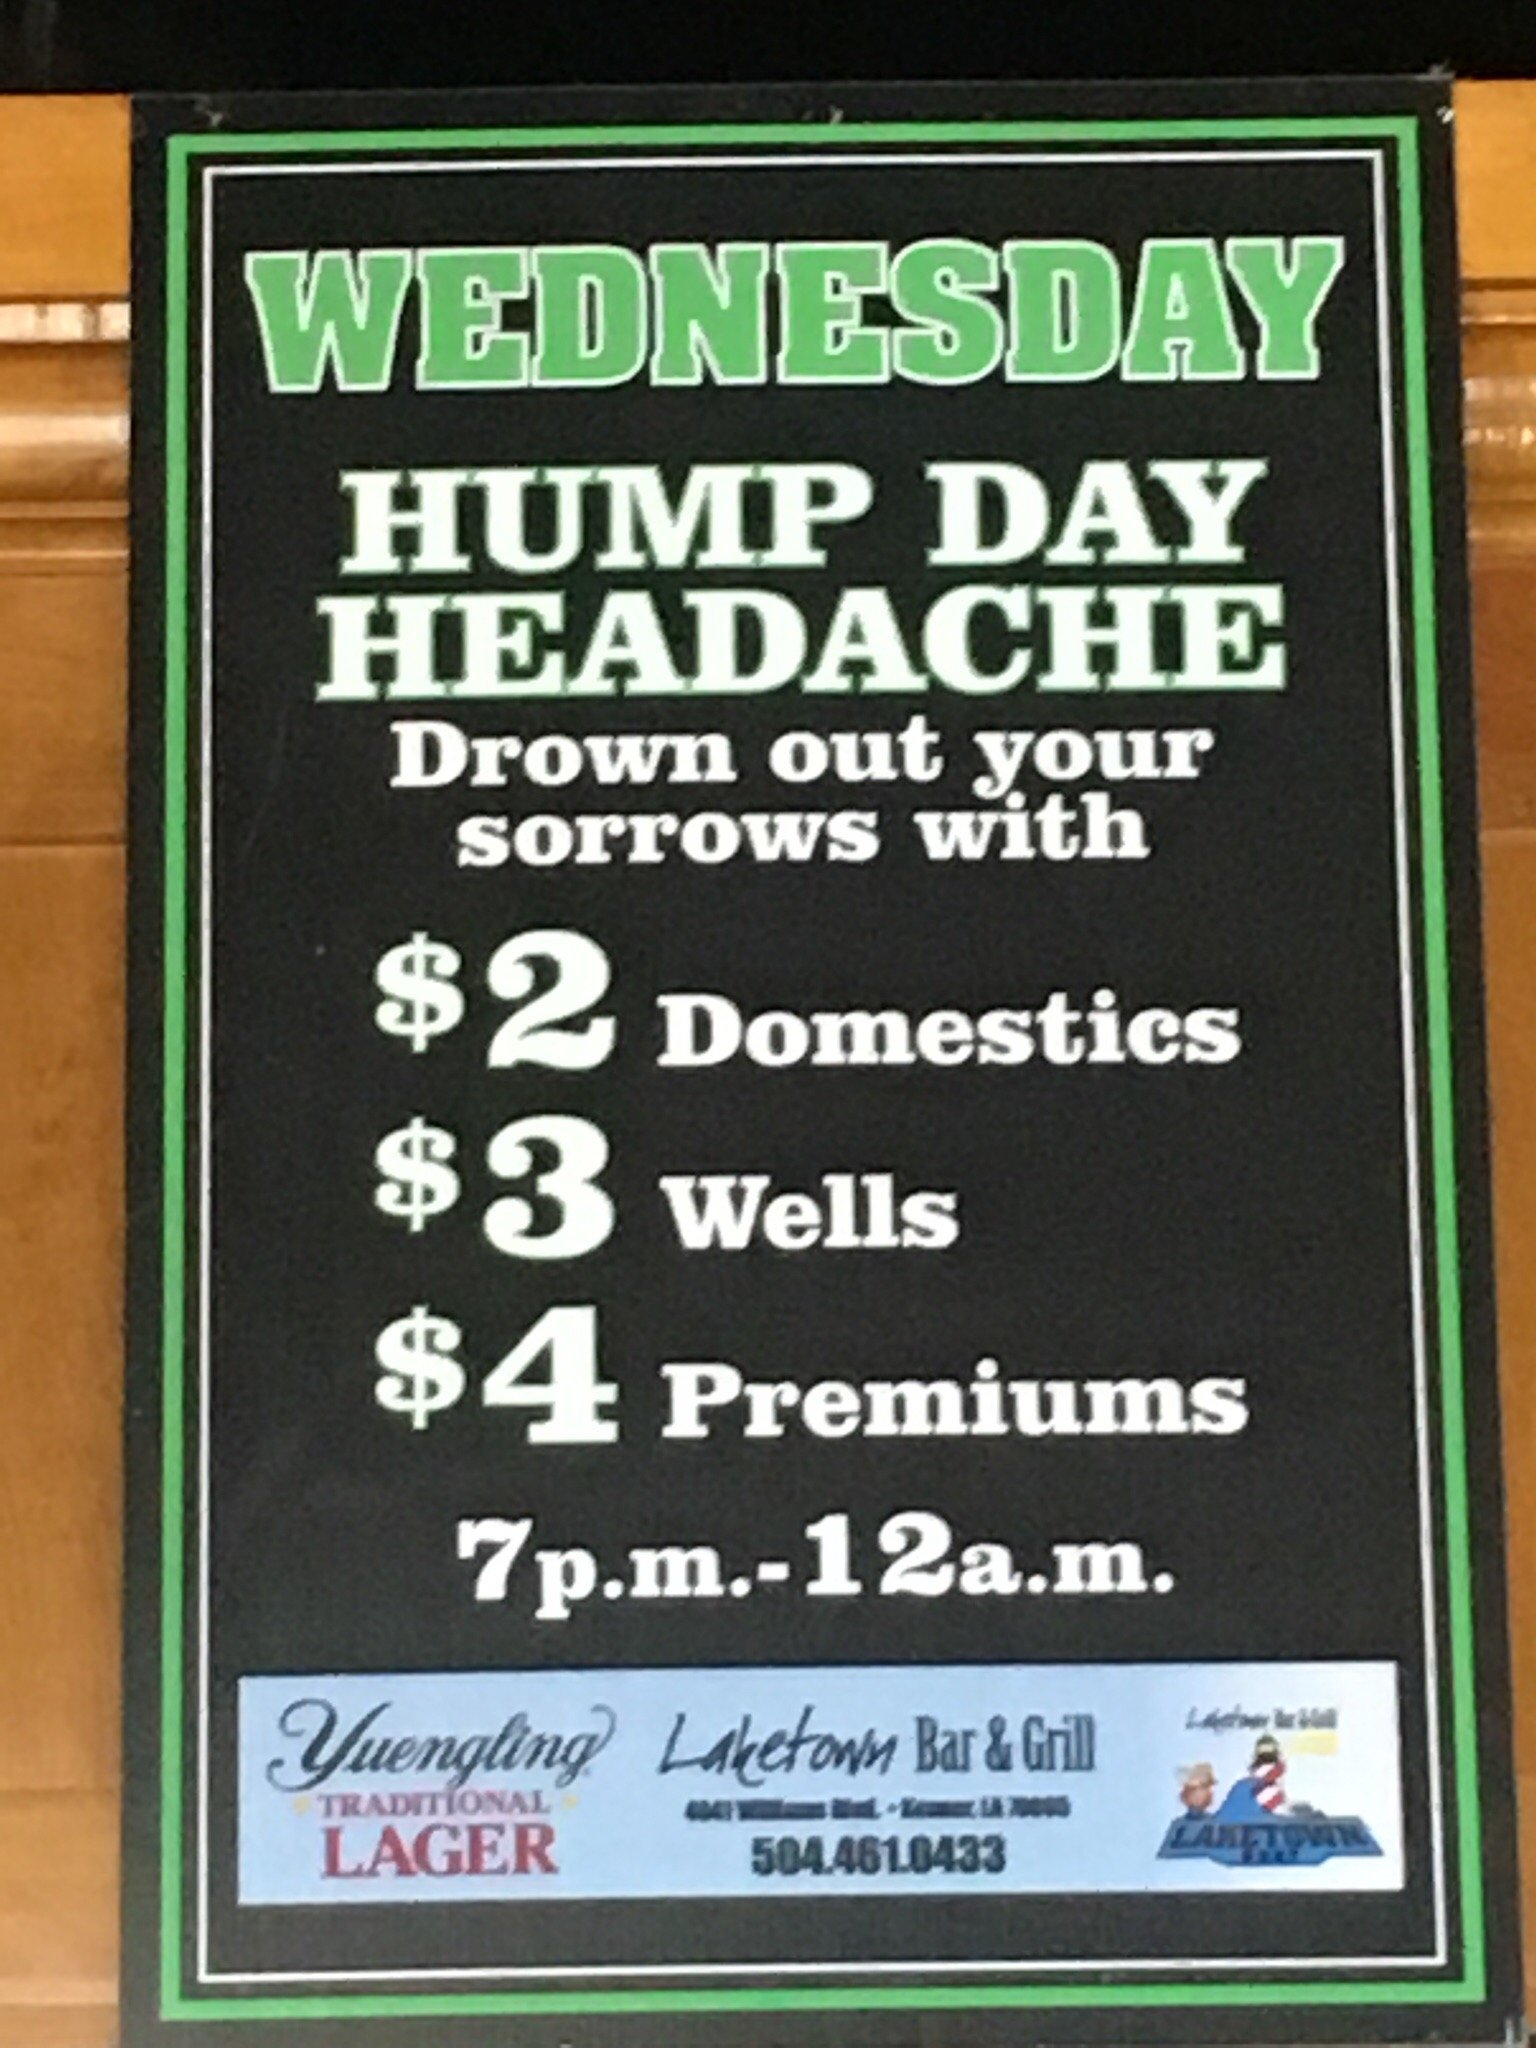 WEDNESDAY
HUMP DAY
HEADACHE
Drown out your
sorrows with
$2 Domestics
$3 Wells
$4 Premiums
7p.m.-12a.m.
Yuengling
TRADITIONAL
LAGER
Laketown Bar & Grill
Williams Blvd. - Kenner, LA 70065
504.461.0433
Laketown Bar & Grill
LAKETOWN